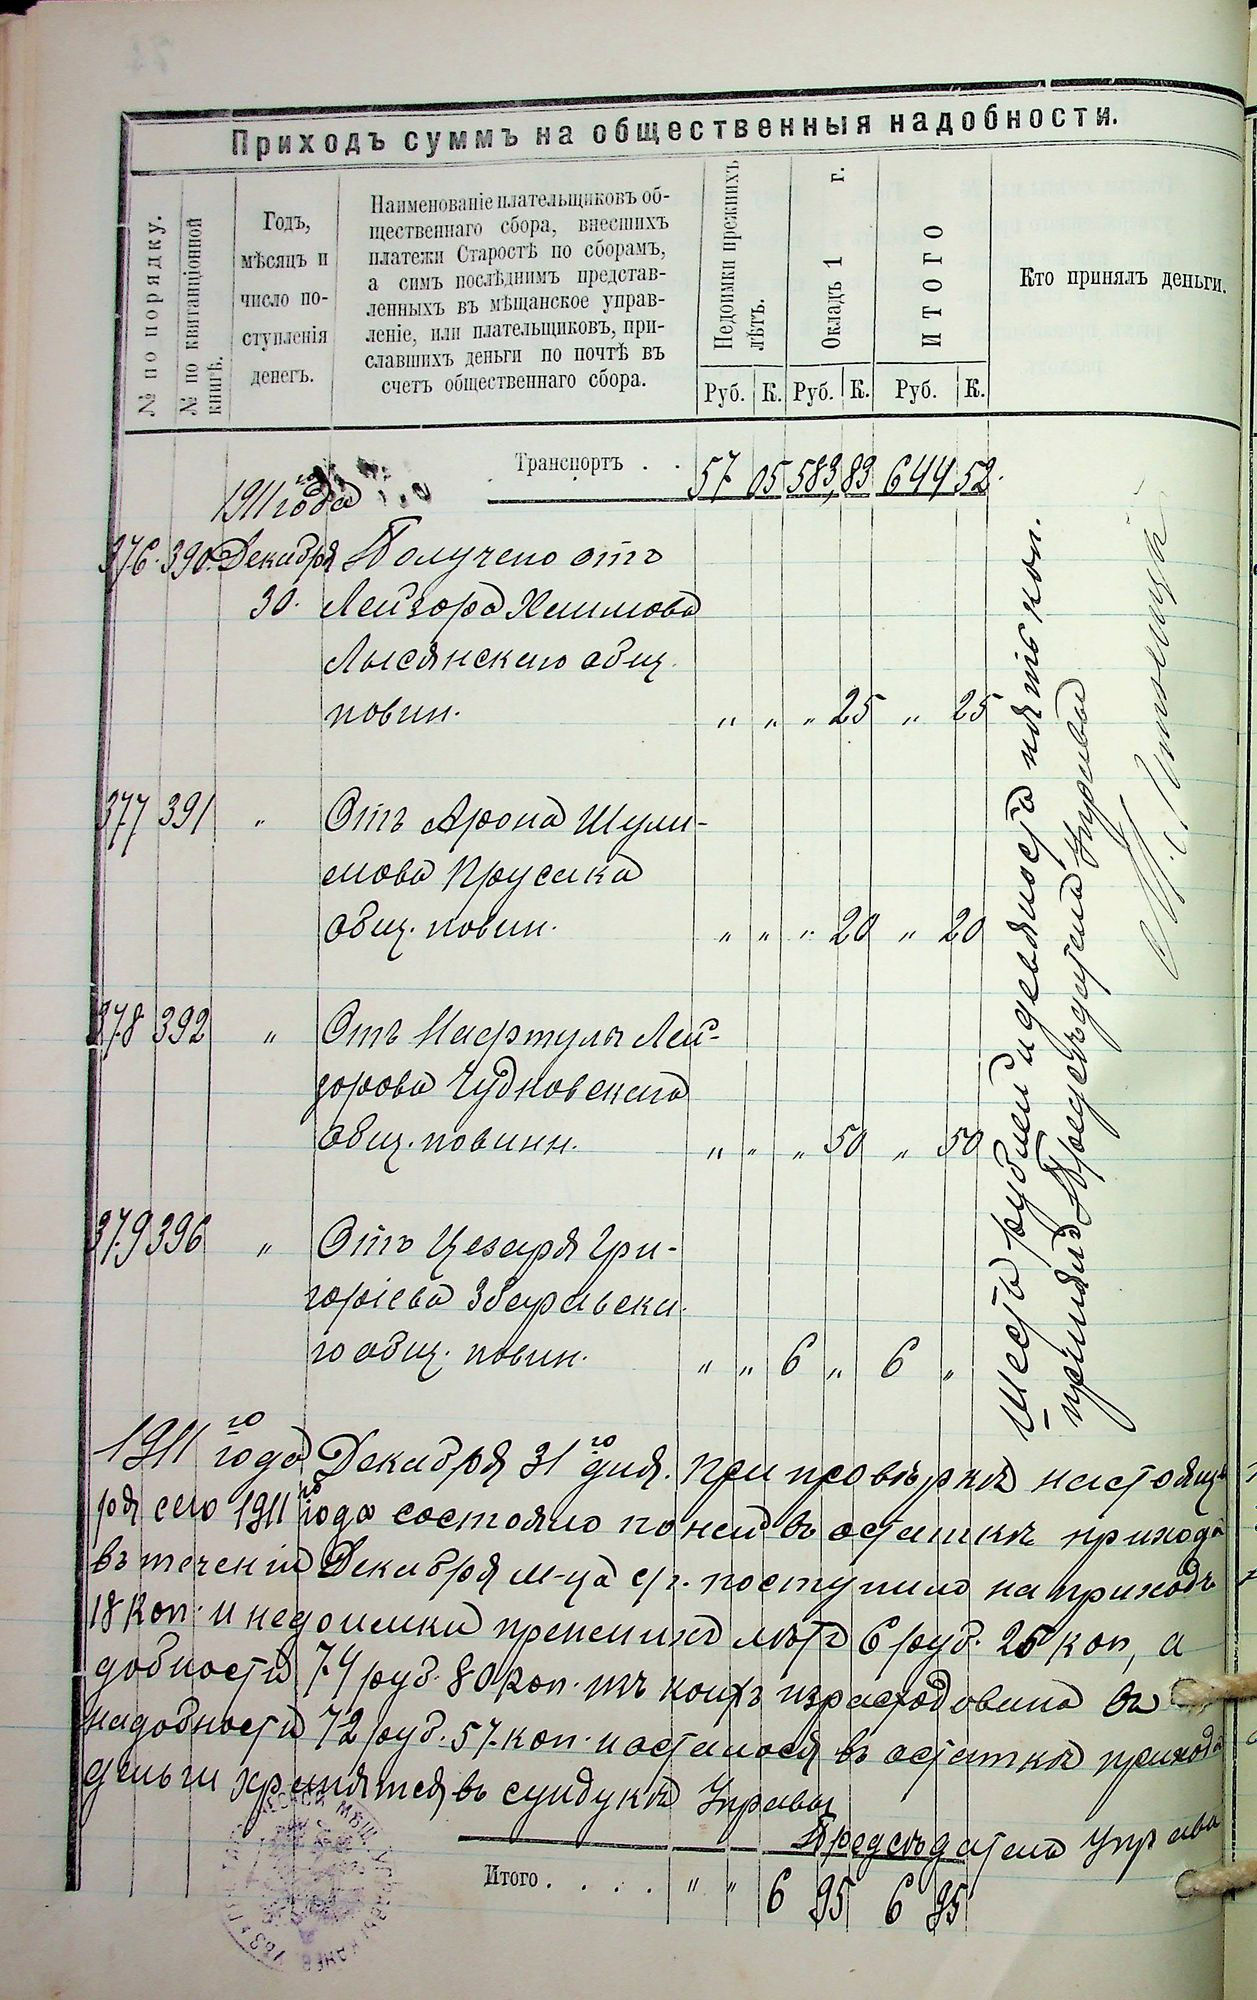 Приходъ суммъ на общественныя надобности.
№ по порядку.
№ по квитанціонной
книгѣ.
Годъ,
мѣсяцъ и
число по-
ступленія
денегъ.
Наименованіе плательщиковъ об-
щественнаго сбора, внесшихъ
платежи Старостѣ по сборамъ,
а симъ послѣднимъ представ-
ленныхъ въ мѣщанское управ-
леніе, или плательщиковъ, при-
славшихъ деньги по почтѣ въ
счетъ общественнаго сбора.
Недоимки прежнихъ
лѣтъ.
Окладъ 1 г.
ИТОГО
Кто принялъ деньги.
Руб. К. Руб. К. Руб. К.
Транспортъ . . 57 05 583 83 644 52
1911 года
376. 390. Декабря Получено отъ
30. Лейзора Хаимова
Лысянскаго общ.
повин. " " " 25 " 25
377 391 " Отъ Арона Шули-
мова Прусака
общ. повин. " " " 20 " 20
378 392 " Отъ Нафтулы Лей-
зорова Чудновскаго
общ. повинн. " " " 50 " 50
379 396 " Отъ Цезаря Гри-
горіева Збаральска-
го общ. повин. " " 6 " 6 "
Шесть рублей и девяность пять коп.
принялъ Предсѣдатель Управы
1911го года Декабря 31го дня. При провѣркѣ настоящ
ря сего 1911го года состояло по ней въ остаткѣ прихода
въ теченіи Декабря м-ца с/г. поступило на приходъ
18 коп. и недоимки прежнихъ лѣтъ 6 руб. 25 коп, а
добности 74 руб. 80 коп. изъ коихъ израсходовано въ
надобности 72 руб. 57 коп. и осталось въ остаткѣ прихода
деньги хранятся въ сундукѣ Управы
Предсѣдатель Управы
Итого . . . . " " 6 95 6 95